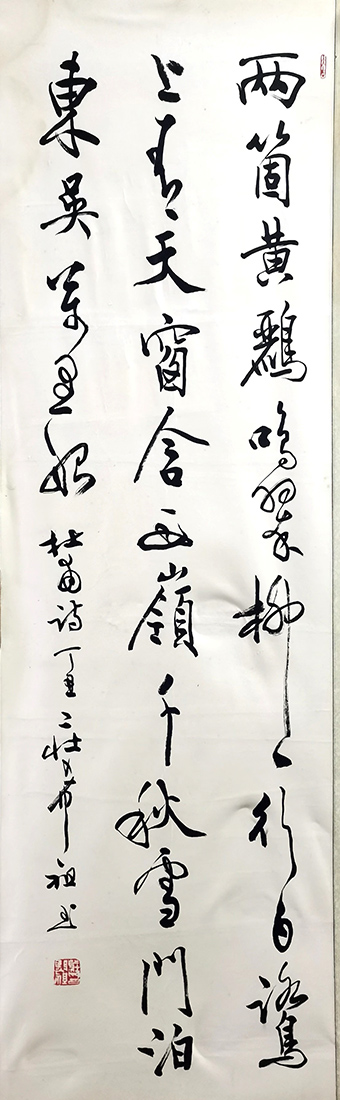 兩箇黄鸝鳴翠柳一行白鷺
上青天窗含西嶺千秋雪門泊
東吳萬里船 杜甫詩 丁丑 希祖书